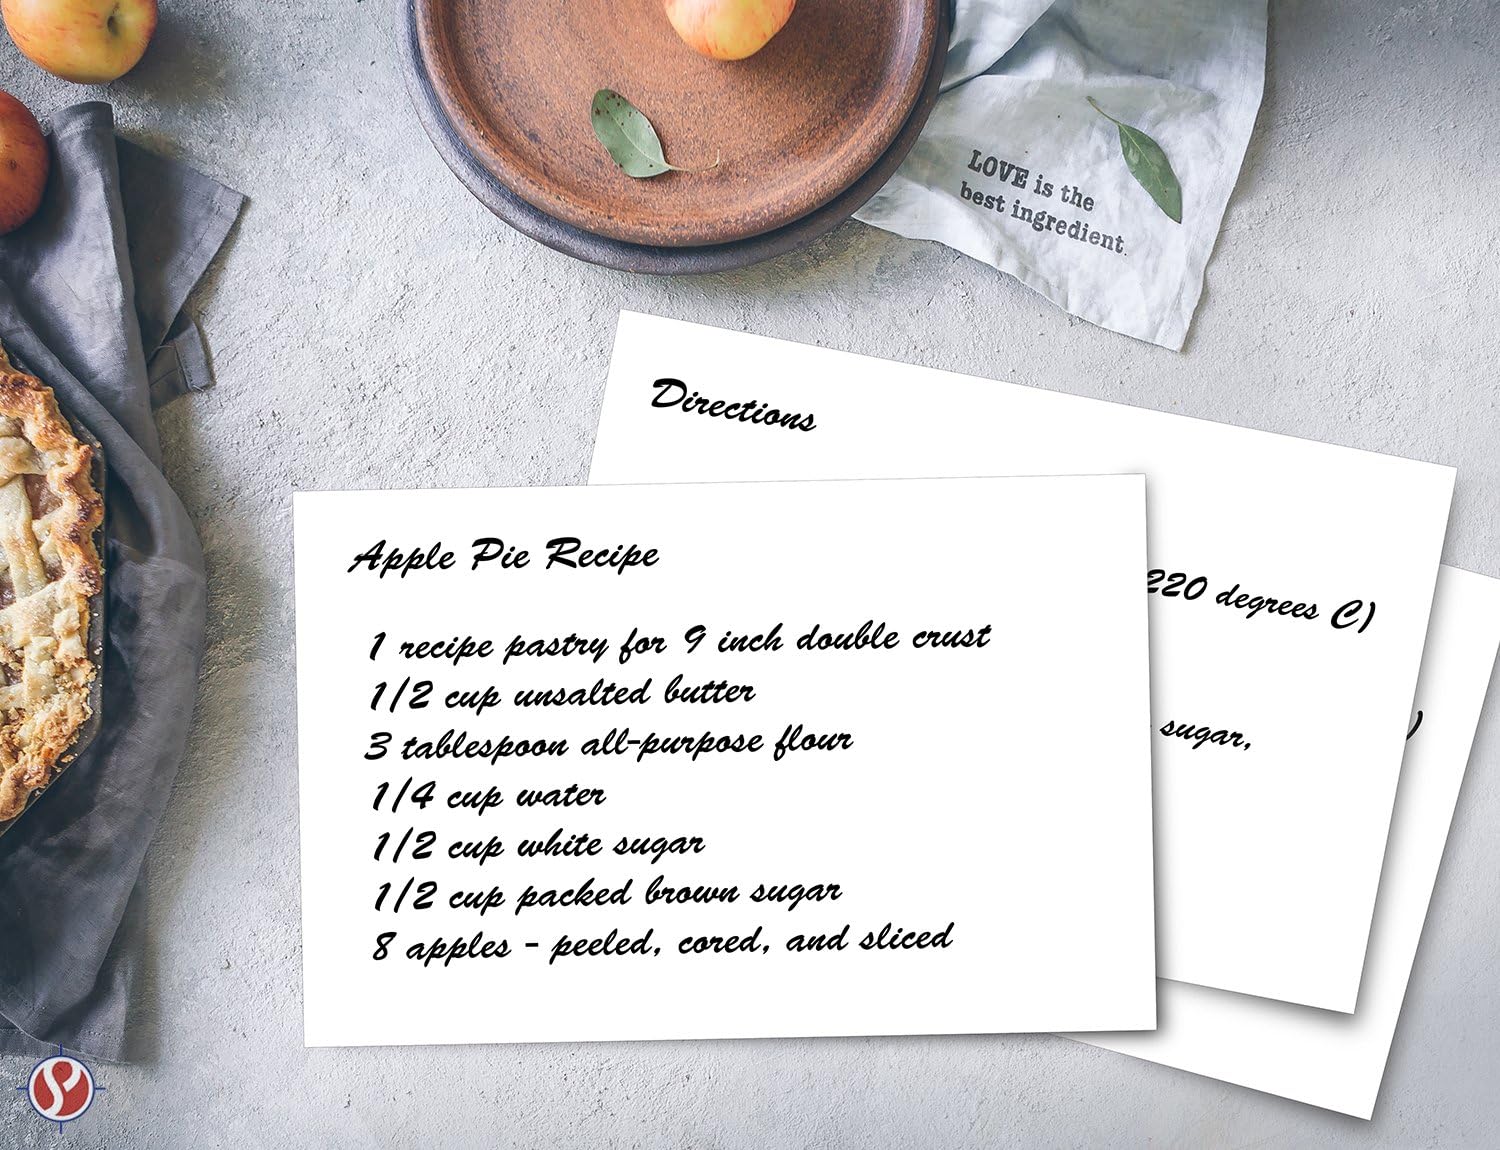 LOVE is the
best ingredient
Directions
220 degrees C)
sugar,
)
Apple Pie Recipe
1 recipe pastry for 9 inch double crust
1/2 cup unsalted butter
3 tablespoon all-purpose flour
1/4 cup water
1/2 cup white sugar
1/2 cup packed brown sugar
8 apples - peeled, cored, and sliced